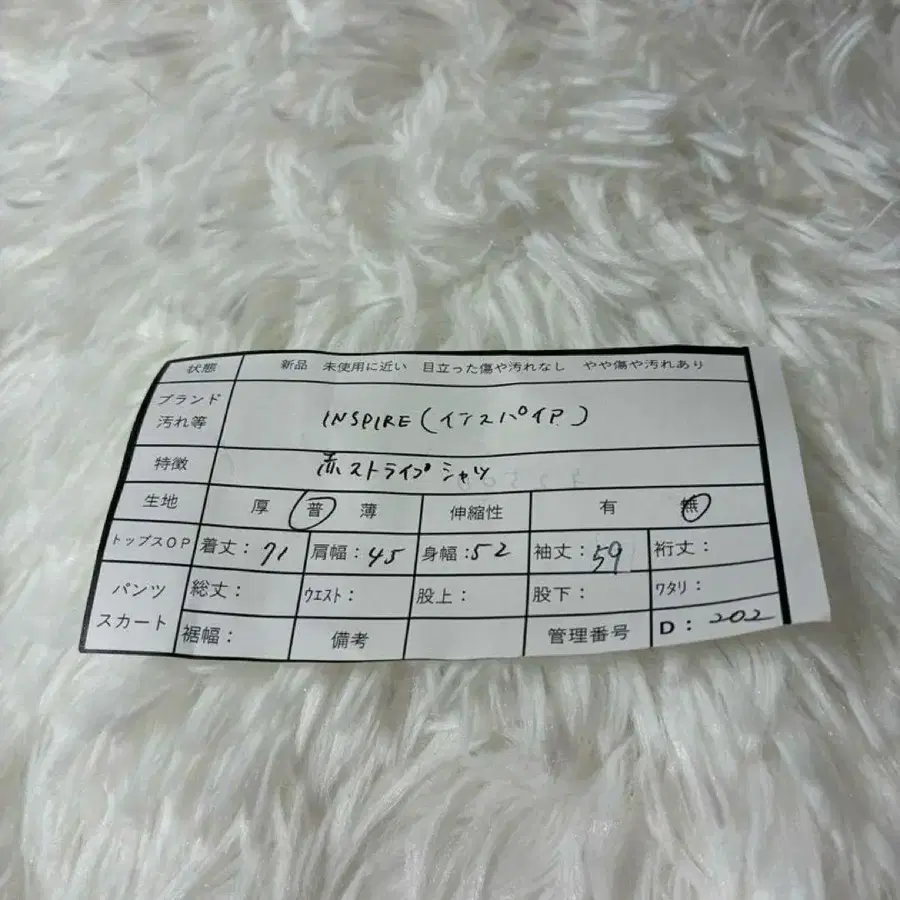 状態 新品 未使用に近い 目立った傷や汚れなし やや傷や汚れあり
ブランド
汚れ等 INSPIRE(インスパイア)
特徴 赤ストライプシャツ
生地 厚 普 薄 伸縮性 有 無
トップスOP 着丈:71 肩幅:45 身幅:52 袖丈:59 裄丈:
パンツ
スカート 総丈: ウエスト: 股上: 股下: ワタリ:
裾幅: 備考 管理番号 D:202